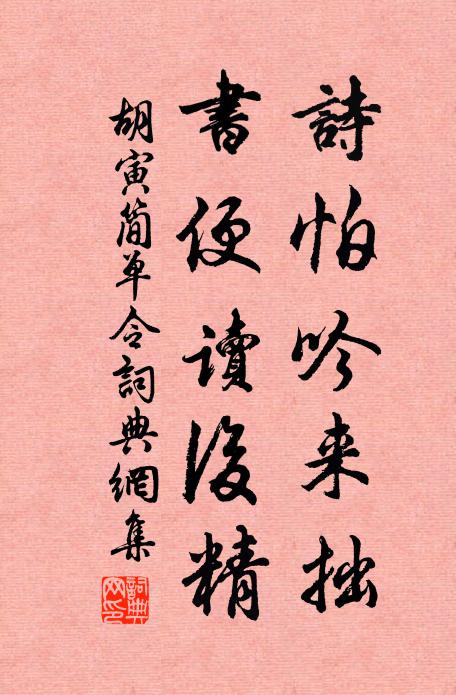 詩怕吟来拙
書便讀後精
胡寅简单令詞典網集
詞典
网印